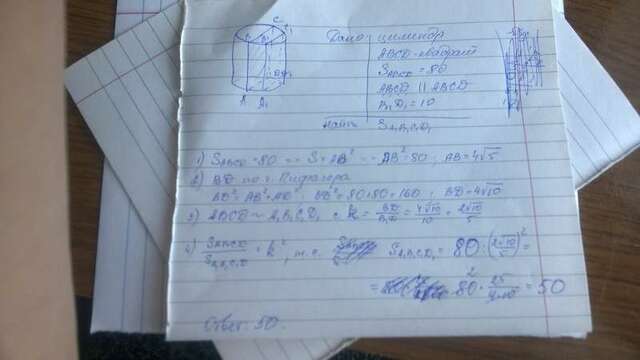 Дано: цилиндр
ABCD - квадрат
S ABCD = 80
ABCD || ABCD
B₁D₁ = 10
Найти S A₁B₁C₁D₁
1) S ABCD = 80 => S = AB² => AB² = 80; AB = 4√5
2) BD по т. Пифагора
BD² = AB² + AD²; BD² = 80 + 80 = 160; BD = 4√10
3) ABCD ~ A₁B₁C₁D₁ с k = BD/B₁D₁ = 4√10/10 = 2√10/5
4) S ABCD/S A₁B₁C₁D₁ = k², т.е. S A₁B₁C₁D₁ = 80 : (2√10/5)² =
= 80 · 25/4·10 = 50
Ответ: 50.